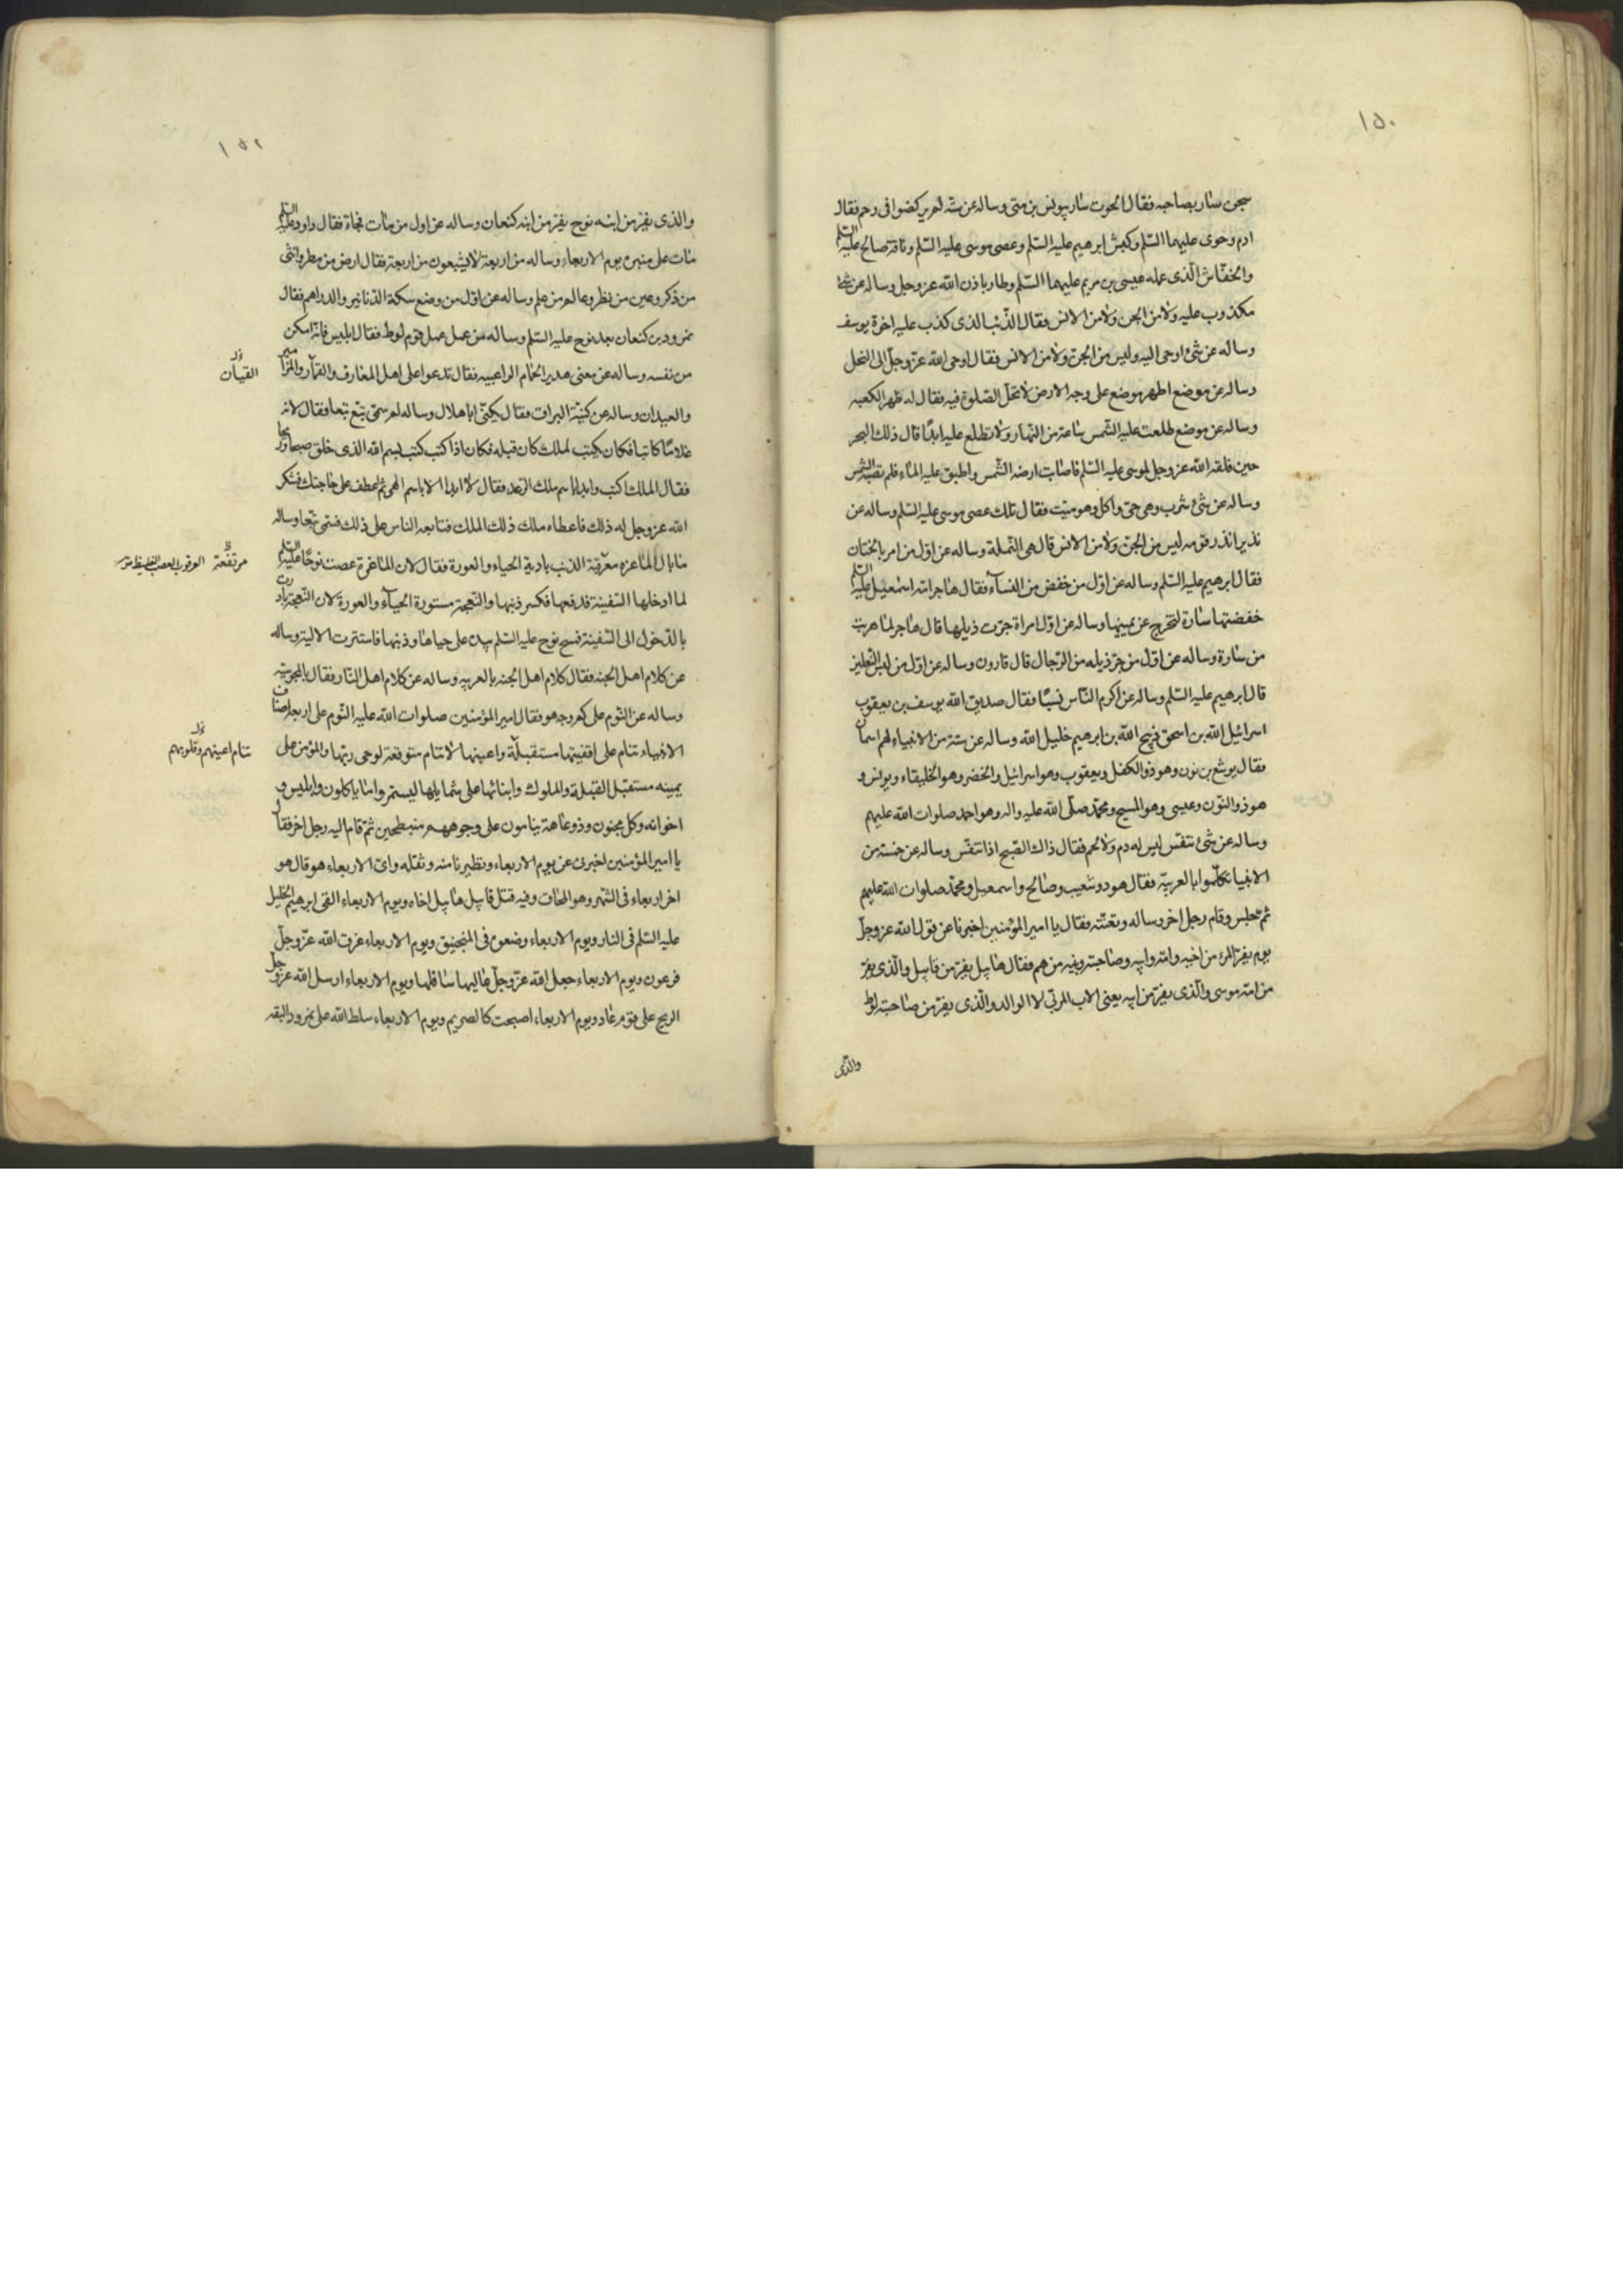 ١٥٠
سجن سار بصاحبه فقال الحوت سار بيونس بن متى وساله عن ستة لم يركضوا فى رحم فقال
ادم وحوى عليهما السّلم وكبش ابرهيم عليه السّلم وعصى موسى عليه السّلم وناقة صالح عليه السّلم
والخفّاش الّذى عمله عيسى بن مريم عليهما السّلم وطار باذن الله عز وجل وساله عن شئ
مكذوب عليه ولا من الجن ولا من الانس فقال الذّئب الذى كذب عليه اخوة يوسف
وساله عن شئ اوحى اليه وليس من الجنّ ولا من الانس فقال اوحى الله عزّ وجلّ الى النحل
وساله عن موضع اطهر موضع على وجه الارض لا تحلّ الصّلوة فيه فقال له ظهر الكعبه
وساله عن موضع طلعت عليه الشّمس ساعة من النّهار ولا تطلع عليه ابدًا قال ذلك البحر
حين فلقه الله عز وجل لموسى عليه السّلم فاصابت ارضه الشّمس واطبق عليه الماء فلم تصبه الشّمس
وساله عن شئ شرب وهى حىّ واكل وهو ميّت فقال تلك عصى موسى عليه السّلم وساله عن
نذير انذر قومه ليس من الجنّ ولا من الانس قال هى النّملة وساله عن اوّل من امر بالختان
فقال ابرهيم عليه السّلم وساله عن اوّل من خفض من النسآء فقال هاجر امّ اسمعيل عليه السّلم
خفضتها سارة لتخرج عن يمينها وساله عن اوّل امراة جرّت ذيلها قال هاجر لما هربت
من سارة وساله عن اوّل من جرّ ذيله من الرّجال قال قارون وساله عن اوّل من لبس النّعلين
قال ابرهيم عليه السّلم وساله عن اكرم النّاس نسبًا فقال صديق الله يوسف بن يعقوب
اسرائيل الله بن اسحق ذبيح الله بن ابرهيم خليل الله وساله عن ستة من الانبياء لهم اسمان
فقال يوشع بن نون وهو ذو الكفل ويعقوب وهو اسرائيل والخضر وهو الخليقاء ويونس و
هو ذو النّون وعيسى وهو المسيح ومحمّد صلّى الله عليه واله وهو احمد صلوات الله عليهم
وساله عن شئ تنفّس ليس له دم ولا لحم فقال ذاك الصّبح اذا تنفّس وساله عن خمسة من
الانبيا تكلّموا بالعربيّة فقال هود وشعيب وصالح واسمعيل ومحمّد صلوات الله عليهم
ثم جلس وقام رجل اخر وساله وتعنّته فقال يا امير المؤمنين اخبرنا عن قول الله عز وجلّ
يوم يفرّ المرء من اخيه وامّه وابيه وصاحبته وبنيه من هم فقال هابيل يفرّ من قابيل والّذى يفرّ
من امّه موسى والّذى يفرّ من ابيه يعنى الاب المربّى لا الوالد والّذى يفرّ من صاحبته لوط
والذى
١٥٢
والذى يفرّ من ابنه نوح يفرّ من ابنه كنعان وساله عن اول من مات فجاة فقال داود عليه السّلم
مات على منبره يوم الاربعاء وساله من اربعة لا يشبعون من اربعة فقال ارض من مطر وانثى
من ذكر وعين من نظر وعالم من علم وساله عن اوّل من وضع سكة الدّنانير والدراهم فقال
نمرود بن كنعان بعد نوح عليه السّلم وساله من عمل عمل قوم لوط فقال ابليس فانّه امكن
من نفسه وساله عن معنى هدير الحمام الراعبيه فقال تدعوا على اهل المعازف والقيآن والمزامير
القيان
والعيدان وساله عن كنية البراق فقال يكنّى ابا هلال وساله لم سمّى تبّع تبعا فقال لانه
غلامًا كاتبا فكان يكتب لملك كان قبله فكان اذا كتب كتب بسم الله الذى خلق صبحا وريحا
فقال الملك اكتب وابدا باسم ملك الرّعد فقال لا ابدا الا باسم الهى ثم اعطف على حاجتك فشكر
الله عز وجل له ذلك فاعطاه ملك ذلك الملك فتابعه الناس على ذلك فسمى تبّعا وساله
ما بال الماعزه معرقبة الذنب بادية الحياء والعورة فقال لان الماعزة عصت نوحًا عليه السّلم
مرتفعة
لما ادخلها السّفينة فدفعها فكسر ذنبها والنّعجة مستورة الحيآء والعورة لان النّعجة بادرت
بالدّخول الى السّفينة فمسح نوح عليه السّلم يده على حياها وذنبها فاستترت الالية وساله
عن كلام اهل الجنه فقال كلام اهل الجنه بالعربيه وساله عن كلام اهل النّار فقال بالمجوسيّه
وساله عن النّوم على كم وجه هو فقال امير المؤمنين صلوات الله عليه النّوم على اربعة اصناف
الانبياء تنام على اقفيتها مستقبلة واعينها لا تنام متوقعة لوحى ربّها والمؤمن على
تنام اعينهم وقلوبهم
يمينه مستقبل القبلة والملوك وابنائها على شمايلها ليستمروا ما ياكلون وابليس و
اخوانه وكل مجنون وذو عاهة ينامون على وجوههم منبطحين ثمّ قام اليه رجل اخر فقال
يا امير المؤمنين اخبرنى عن يوم الاربعاء وتطيرنا منه وثقله واىّ الاربعاء هو قال هو
اخر اربعاء فى الشّهر وهو المحاق وفيه قتل قابيل هابيل اخاه ويوم الاربعاء القى ابرهيم الخليل
عليه السّلم فى النار ويوم الاربعاء وضعوه فى المنجنيق ويوم الاربعاء غرق الله عزّ وجلّ
فرعون ويوم الاربعاء جعل الله عزّ وجلّ عاليها سافلها ويوم الاربعاء ارسل الله عزّ وجلّ
الريح على قوم عاد ويوم الاربعاء اصبحت كالصريم ويوم الاربعاء سلط الله على نمرود البقه